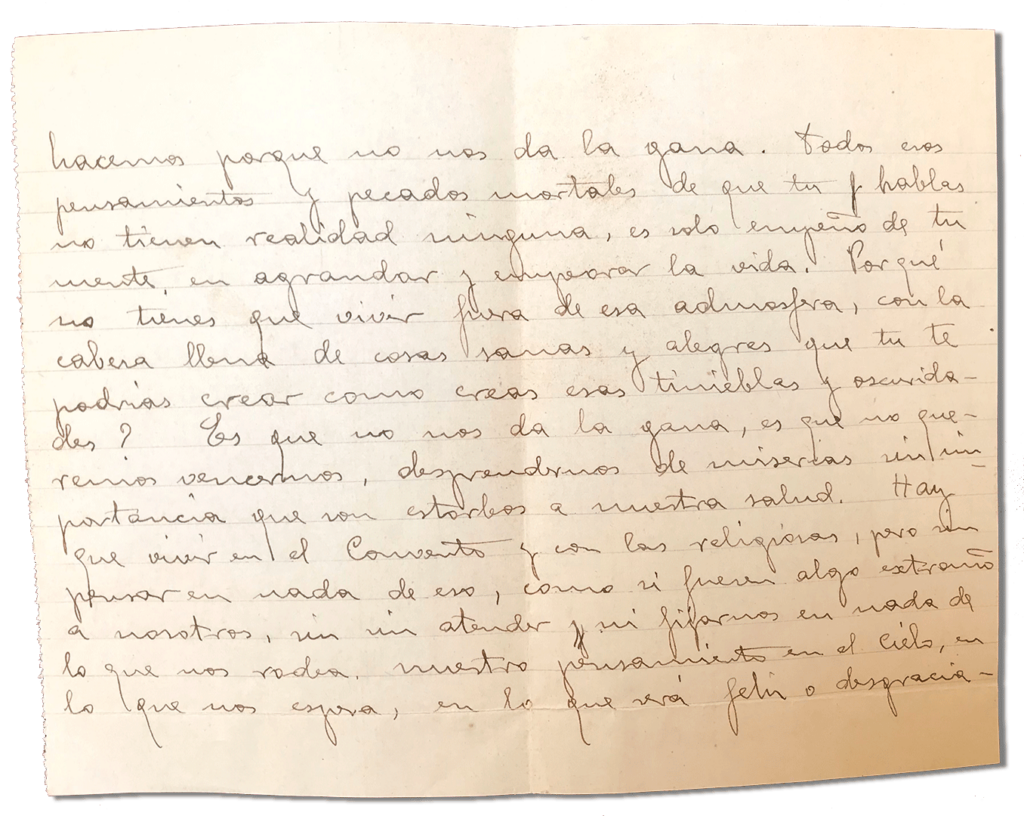 hacemos porque no nos da la gana. Todos esos
pensamientos y pecados mortales de que tu hablas
no tienen realidad ninguna, es solo empeño de tu
mente, en agrandar y empeorar la vida. Por qué
no tienes que vivir fuera de esa admosfera, con la
cabeza llena de cosas sanas y alegres que tu te
podrias crear como creas esas tinieblas y oscurida-
des? Es que no nos da la gana, es que no que-
remos vencernos, desprendernos de miserias sin im-
portancia que son estorbos a nuestra salud. Hay
que vivir en el Convento y con las religiosas, pero sin
pensar en nada de eso, como si fuesen algo extraño
a nosotros, sin atender y ni fijarnos en nada de
lo que nos rodea. nuestro pensamiento en el Cielo, en
lo que nos espera, en lo que será feliz o desgracia-